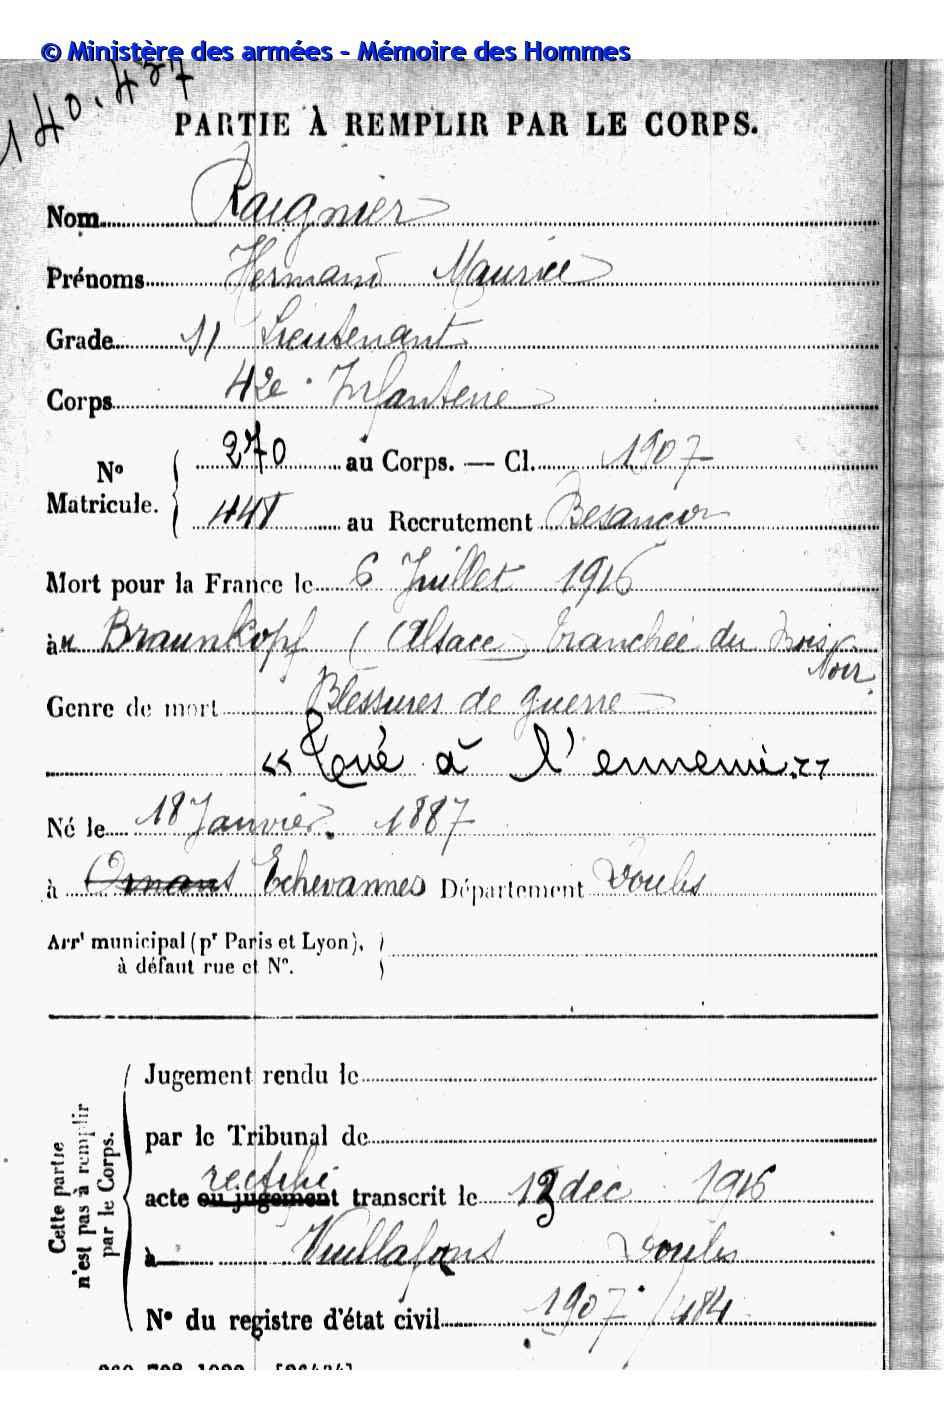 © Ministère des armées - Mémoire des Hommes
140.427
PARTIE À REMPLIR PAR LE CORPS.
Nom Raignier
Prénoms Hermand Maurice
Grade S/ Lieutenant
Corps 42e Infanterie
N° Matricule. 270 au Corps. — Cl. 1907
au Recrutement Besançon
Mort pour la France le 6 Juillet 1916
à u Braunkopf (Alsace) tranchée du Bois
Noir
Genre de mort Blessures de guerre
"Tué à l'ennemi"
Né le 18 Janvier 1887
à Ornans Echevannes Département Doubs
Arrt municipal (pr Paris et Lyon),
à défaut rue et N°.
Cette partie n'est pas à remplir par le Corps.
Jugement rendu le
par le Tribunal de
rectifié
acte ou jugement transcrit le déc 1916
à Vuillafans Doubs
N° du registre d'état civil 1907/484